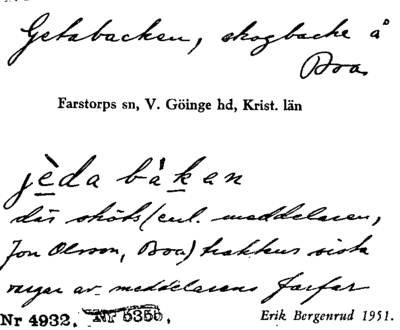 Getabacken, skogbacke å
Boa
Farstorps sn, V. Göinge hd, Krist. län
jèda bàkan
där sköts (enl. meddelaren,
Jon Olsson, Boa) traktens sista
vargar av meddelarens farfar
Nr 4932. Nr 5355. Erik Bergenrud 1951.